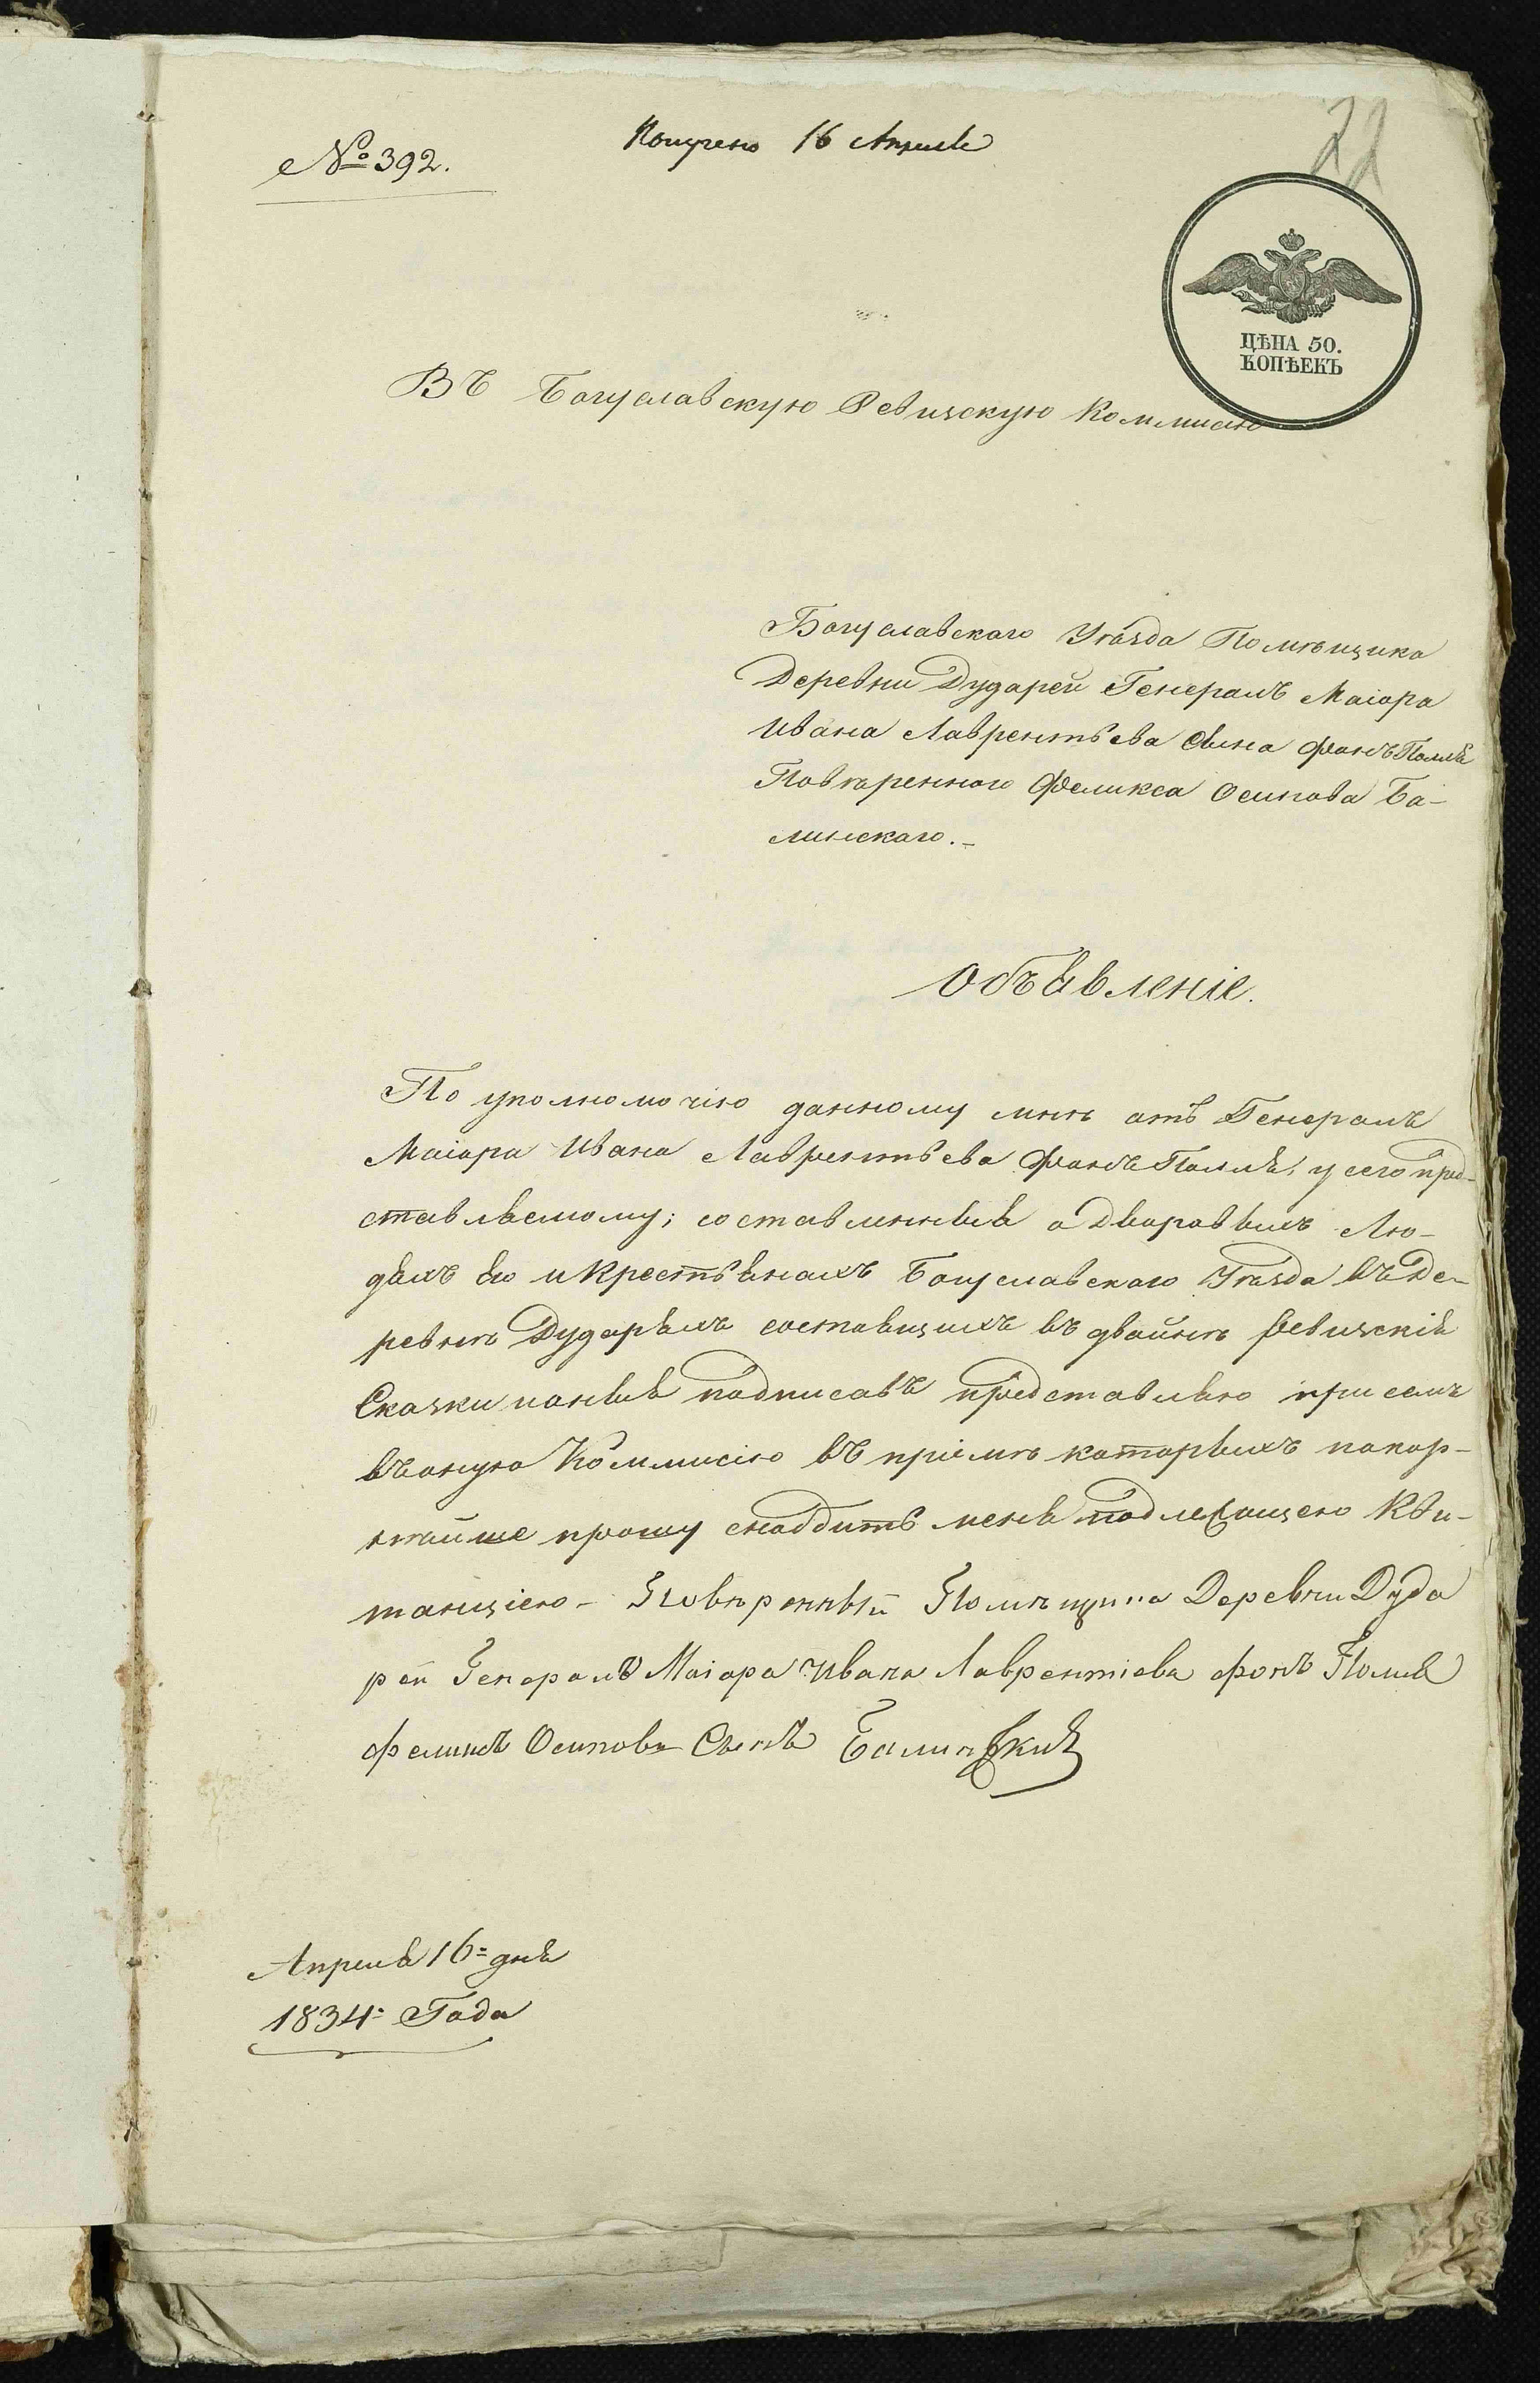 № 392.
Получено 16 Апреля
22
ЦѢНА 50.
КОПѢЕКЪ
Въ Богуславскую Ревизскую Коммисію
Богуславскаго Уѣзда Помѣщика
Деревни Дударей Генералъ Маіора
Ивана Лаврентьева Сына фонъ Полля
Повѣреннаго Феликса Осипова Ба-
линскаго.-
Объявленіе.
По уполномочію данному мнѣ отъ Генералъ
Маіора Ивана Лаврентьева фонъ Полля, у сего пред-
ставляемому; составленныя о Дворовыхъ Лю-
дяхъ Его и Крестьянахъ Богуславскаго Уѣзда въ Де-
ревнѣ Дударяхъ состоящихъ въ двойнѣ Ревизскія
Сказки поныя подписавъ представляю при семъ
въ оную Коммисію въ пріемѣ которыхъ покор-
нѣйше прошу снабдить меня подлежащею Кви-
танціею - Повѣренный Помѣщика Деревни Дуда
рей Генералъ Маіора Ивана Лаврентіева фонъ Полля
Феликсъ Осиповъ Сынъ Балинский
Апреля 16= дня
1834= Года